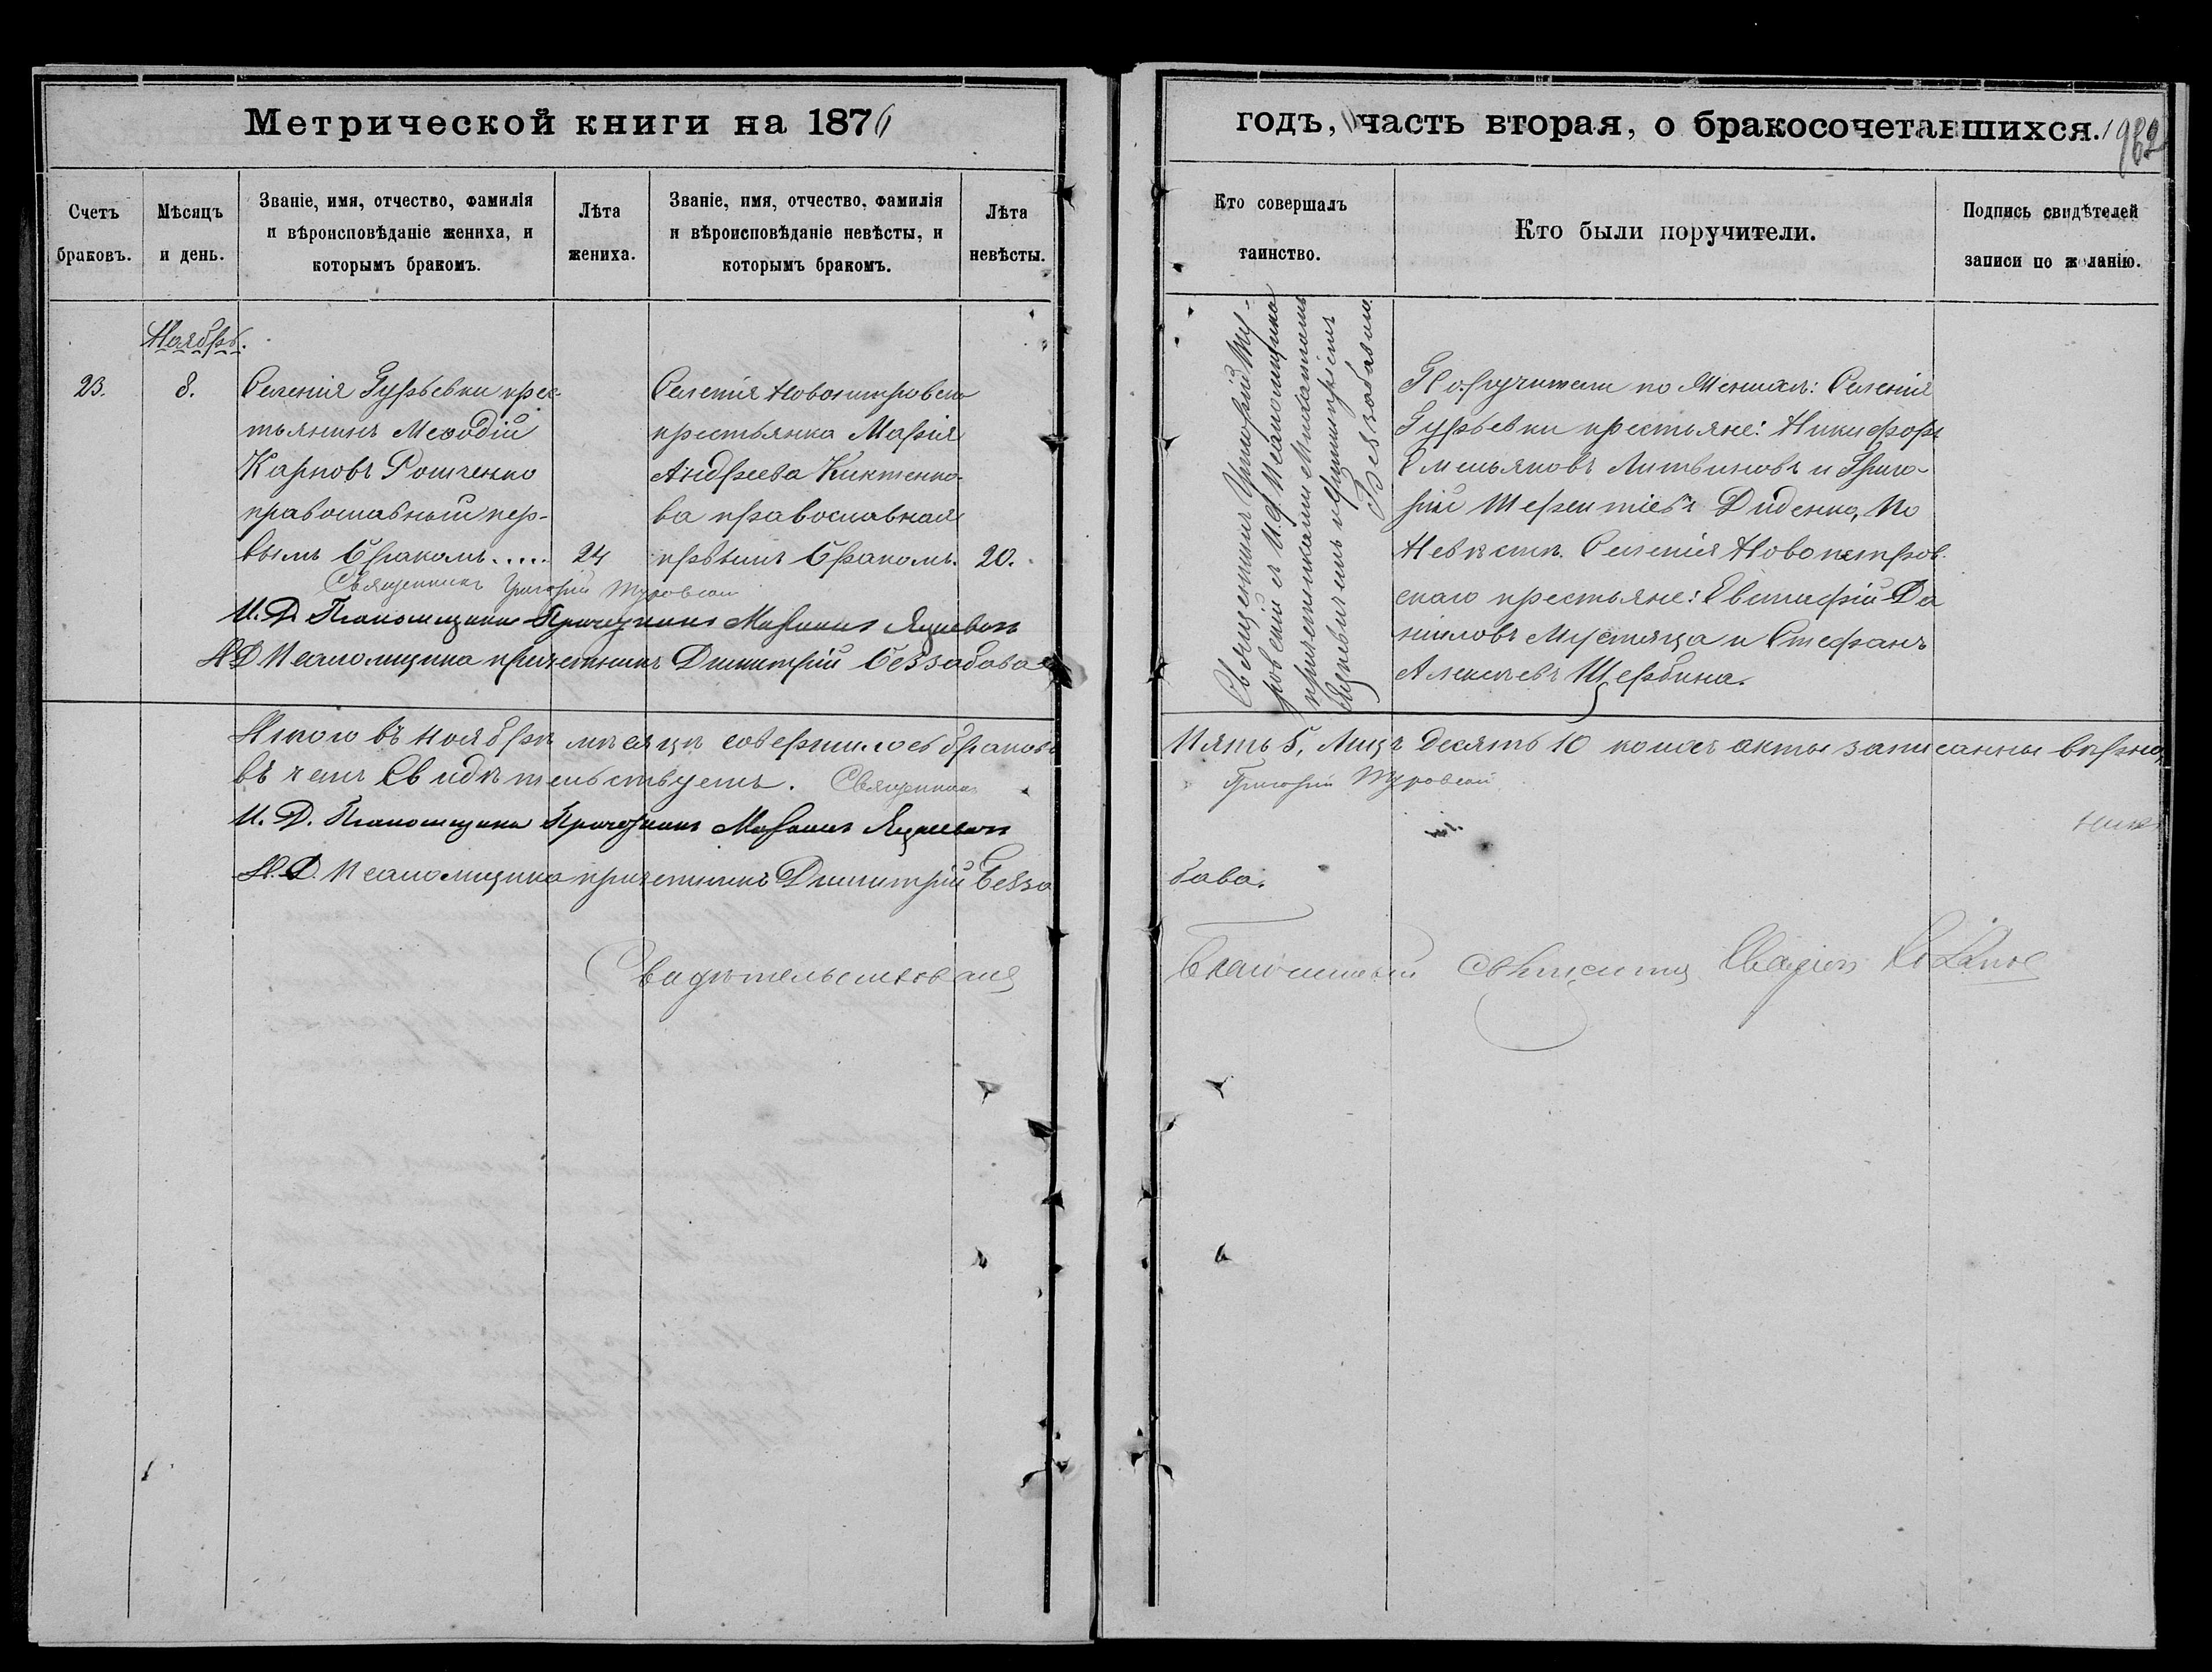 Метрической книги на 1876
годъ, часть вторая, о бракосочетавшихся.
982
Счетъ браковъ.
Мѣсяцъ и день.
Званіе, имя, отчество, фамилія и вѣроисповѣданіе жениха, и которымъ бракомъ.
Лѣта жениха.
Званіе, имя, отчество, фамилія и вѣроисповѣданіе невѣсты, и которымъ бракомъ.
Лѣта невѣсты.
Кто совершалъ таинство.
Кто были поручители.
Подпись свидѣтелей записи по желанію.
Ноябрь.
23.
8.
Селенія Гурьевки крес-
тьянинъ Меѳодій
Карповъ Рошченко
православный пер-
вымъ бракомъ.....
24
Селенія Новопетровска
крестьянка Марія
Андреева Киктенко-
ва православная
первымъ бракомъ.
20.
Священникъ Григорій Ту-
ровскій съ И. д. Псаломщика
причетниками Михаиломъ
Яцкевичемъ и Димитріемъ
Беззабавою.
Поручители по Женихѣ: Селенія
Гурьевки крестьяне: Никифоръ
Емельяновъ Литвиновъ и Григо-
рій Терентіевъ Диденко, по
Невѣстѣ Селенія Новопетров
скаго крестьяне: Евстафій Да
ниловъ Мустяца и Стефанъ
Алексѣевъ Щербина.
Священникъ Григорій Туровскій
И. Д. Псаломщика Причетникъ Михаилъ Яцкевичъ
И Д Псаломщика причетникъ Димитрій Беззабава
Итого въ Ноябрѣ мѣсяцѣ совершилось браковъ
Пять 5, Лицъ десять 10 коихъ акты записанны вѣрно,
въ чемъ Свидѣтельствуемъ. Священникъ
Григорій Туровскій
И. Д. Псаломщика Причетникъ Михаилъ Яцкевичъ
И. Д. Псаломщика причетникъ Димитрій Безза
бава.
Свидѣтельствовалъ
Благочинный Священникъ